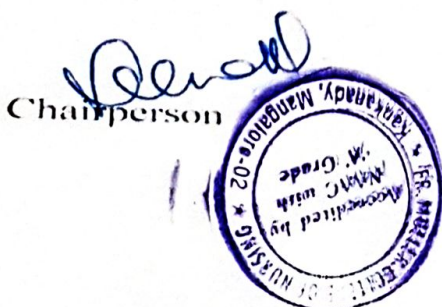 Chairperson
FR. MULLER COLLEGE OF NURSING
Kankanady, Mangalore-02
Accredited by
NAAC with
'A' Grade